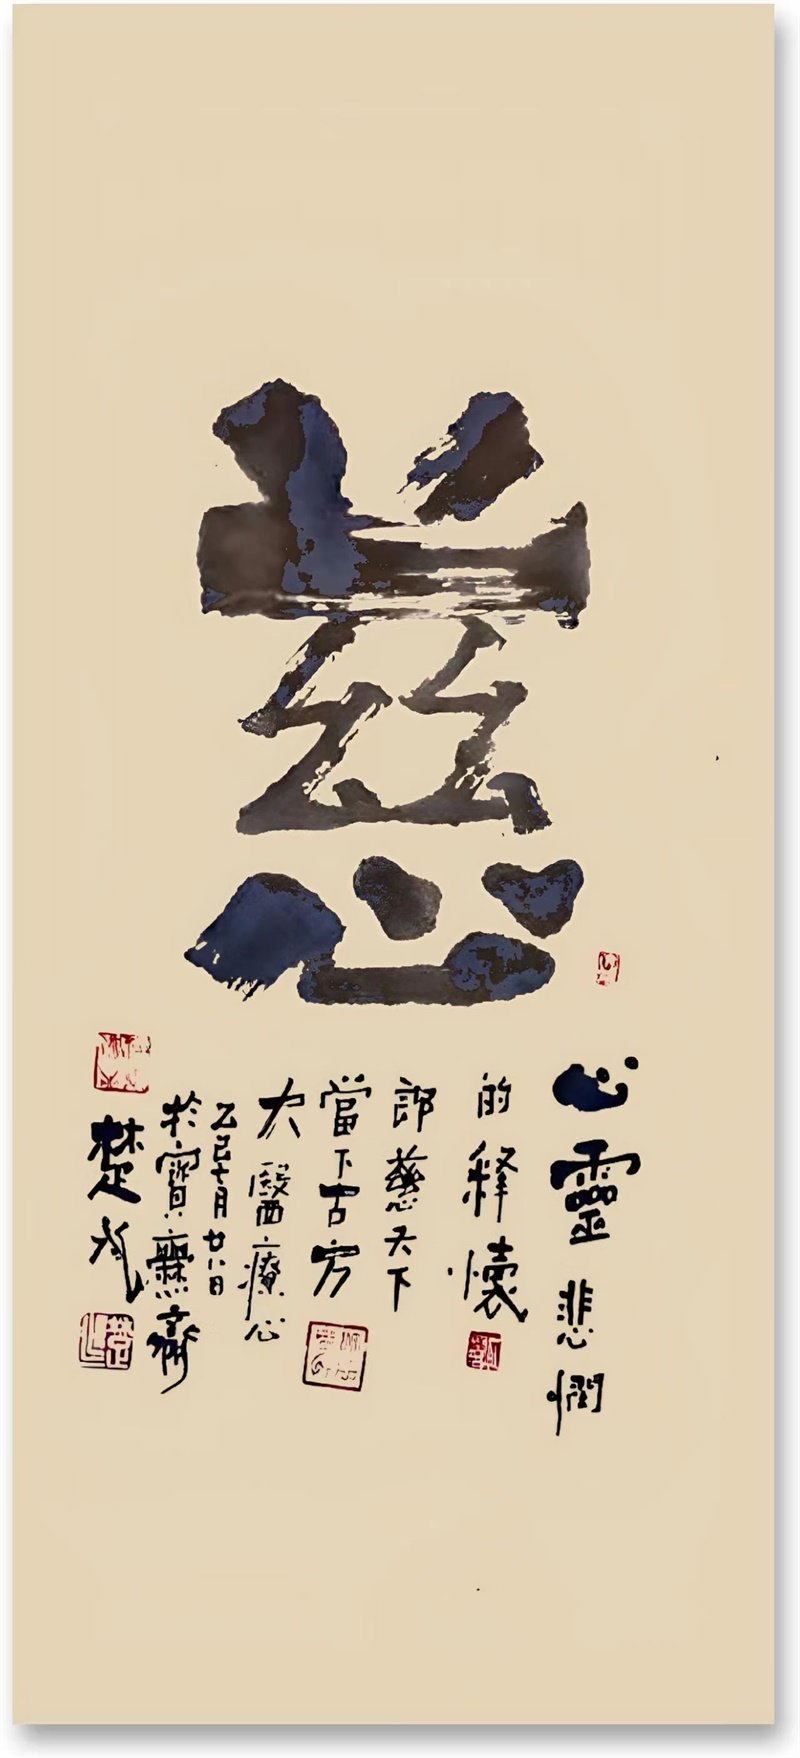 慈
心靈悲憫
的釋懷
即慈天下
當下古方
大醫療心
乙巳七月廿八日
於寶齋
楚